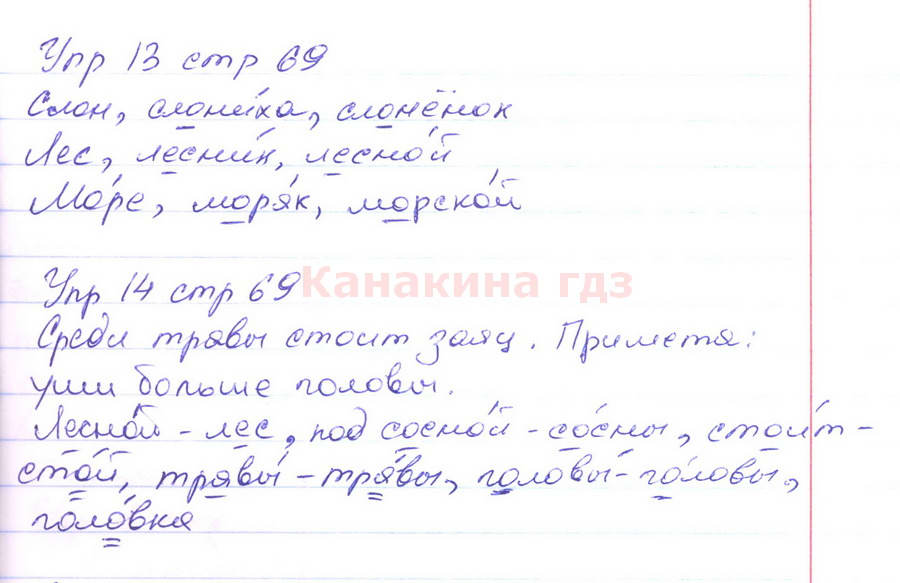 Упр 13 стр 69
Слон, слони́ха, слонёнок
Лес, лесни́к, лесно́й
Мо́ре, моря́к, морско́й
Упр 14 стр 69 Канакина гдз
Среди травы стоит заяц. Примета:
уши больше головы.
Лесно́й - лес, под сосно́й - со́сны, стои́т -
сто́й, травы́ - тра́вы, головы́ - го́ловы,
голо́вка